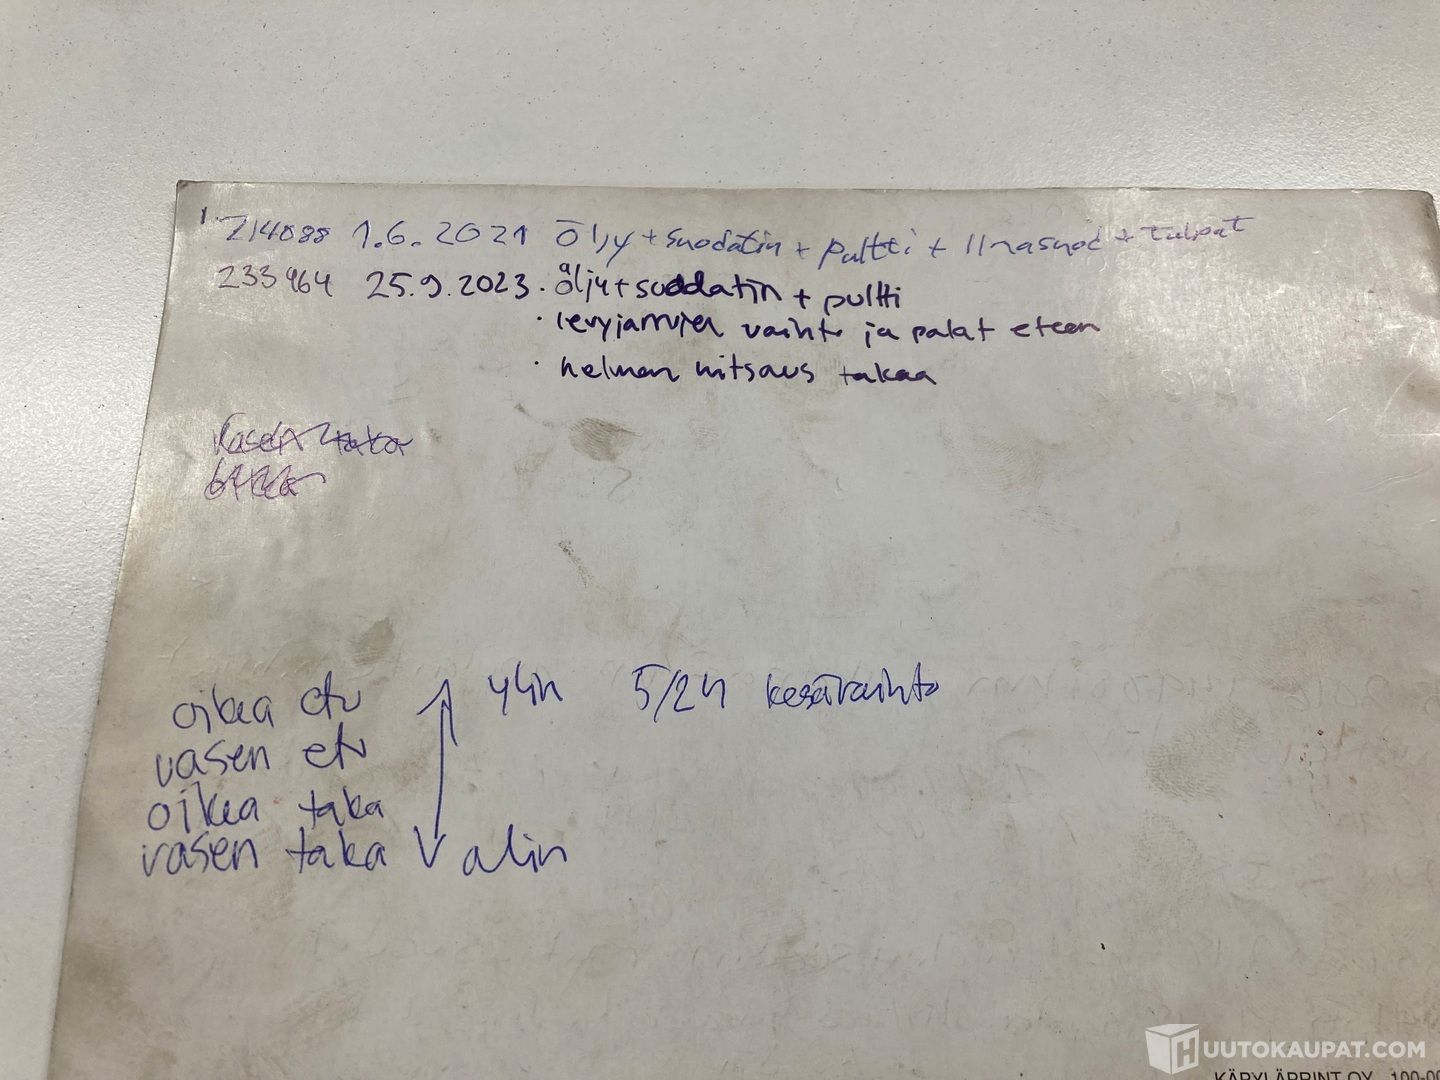 214088 1.6.2021 Öljy + suodatin + pultti + ilmasuod + tulpat
233964 25.9.2023 · öljy + suodatin + pultti
· levyjarrujen vaihto ja palat eteen
· helman hitsaus takaa
vasen taka
oikea etu ylin 5/24 kesävaihto
vasen etu
oikea taka
vasen taka alin
HUUTOKAUPAT.COM
KÄPYLÄPRINT OY